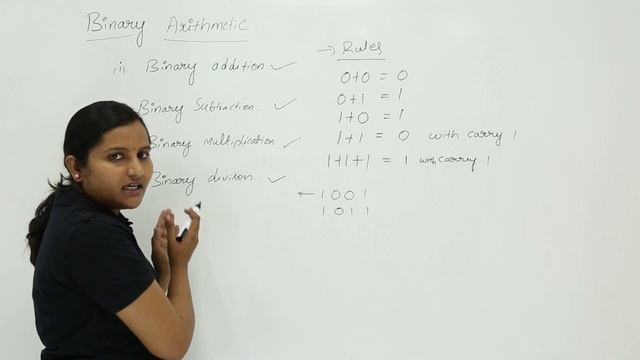 Binary Arithmetic
i) Binary addition ✓
Binary Subtraction. ✓
Binary Multiplication ✓
Binary divison ✓
→ Rules
0+0 = 0
0+1 = 1
1+0 = 1
1+1 = 0 with carry 1
1+1+1 = 1 with carry 1
← 1 0 0 1
1 0 1 1